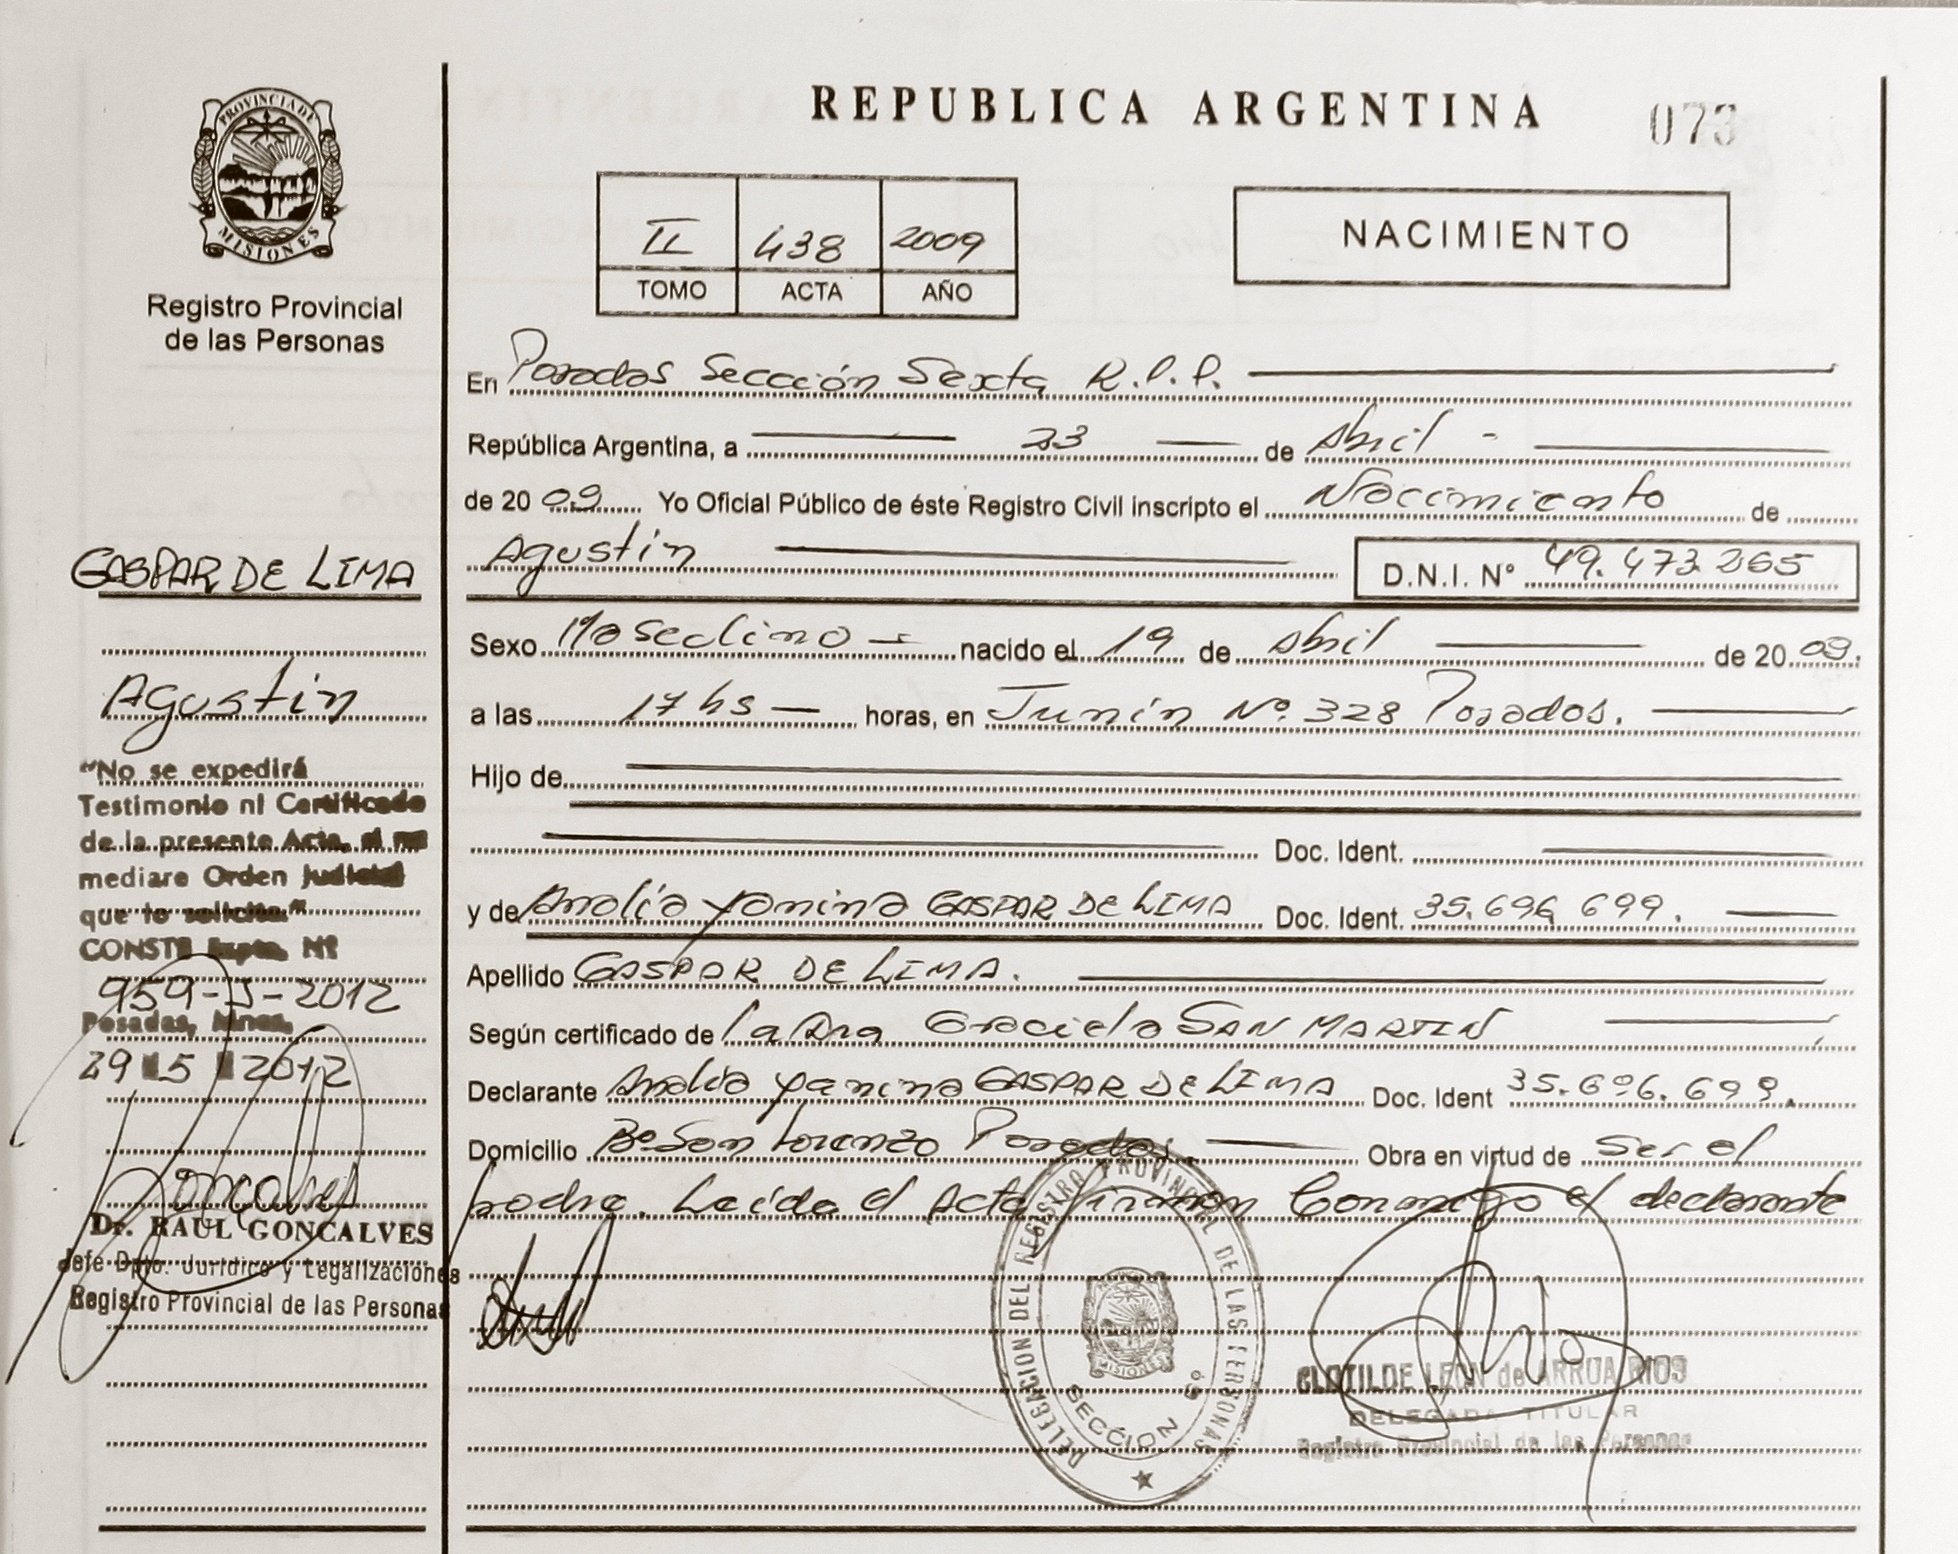 PROVINCIA DE
MISIONES
Registro Provincial
de las Personas
REPUBLICA ARGENTINA
073
II 438 2009
TOMO ACTA AÑO
NACIMIENTO
En Posadas Sección Sexta R.P.P.
República Argentina, a 23 de Abril -
de 20 09 Yo Oficial Público de éste Registro Civil inscripto el Nacimiento de
Agustin D.N.I. N° 49.473.265
Sexo Masculino nacido el 19 de Abril de 20 09.
a las 17 hs horas, en Junín N°. 328 Posadas.
Hijo de
Doc. Ident.
y de Analía Yanina GASPAR DE LIMA Doc. Ident. 35.696 699.
Apellido GASPAR DE LIMA.
Según certificado de la Dra Graciela SAN MARTIN
Declarante Analía Yanina GASPAR DE LIMA Doc. Ident 35.696.699.
Domicilio B° San Lorenzo Posadas. Obra en virtud de Ser el
padre. Leída el Acta Firman Conmigo el declarante
GASPAR DE LIMA
Agustin
"No se expedirá
Testimonio ni Certificado
de la presente Acta, si no
mediare Orden Judicial
que lo solicite"
CONSTE Expte. Nº
959-J-2012
Posadas, Mnes.
29 5 2012
Goncalves
Dr. RAUL GONCALVES
Jefe Dpto. Jurídico y Legalizaciones
Registro Provincial de las Personas
DELEGACION DEL REGISTRO PROVINCIAL DE LAS PERSONAS
MISIONES
SECCION 6º
CLOTILDE LEON de ARRUA RIOS
DELEGADA TITULAR
Registro Provincial de las Personas